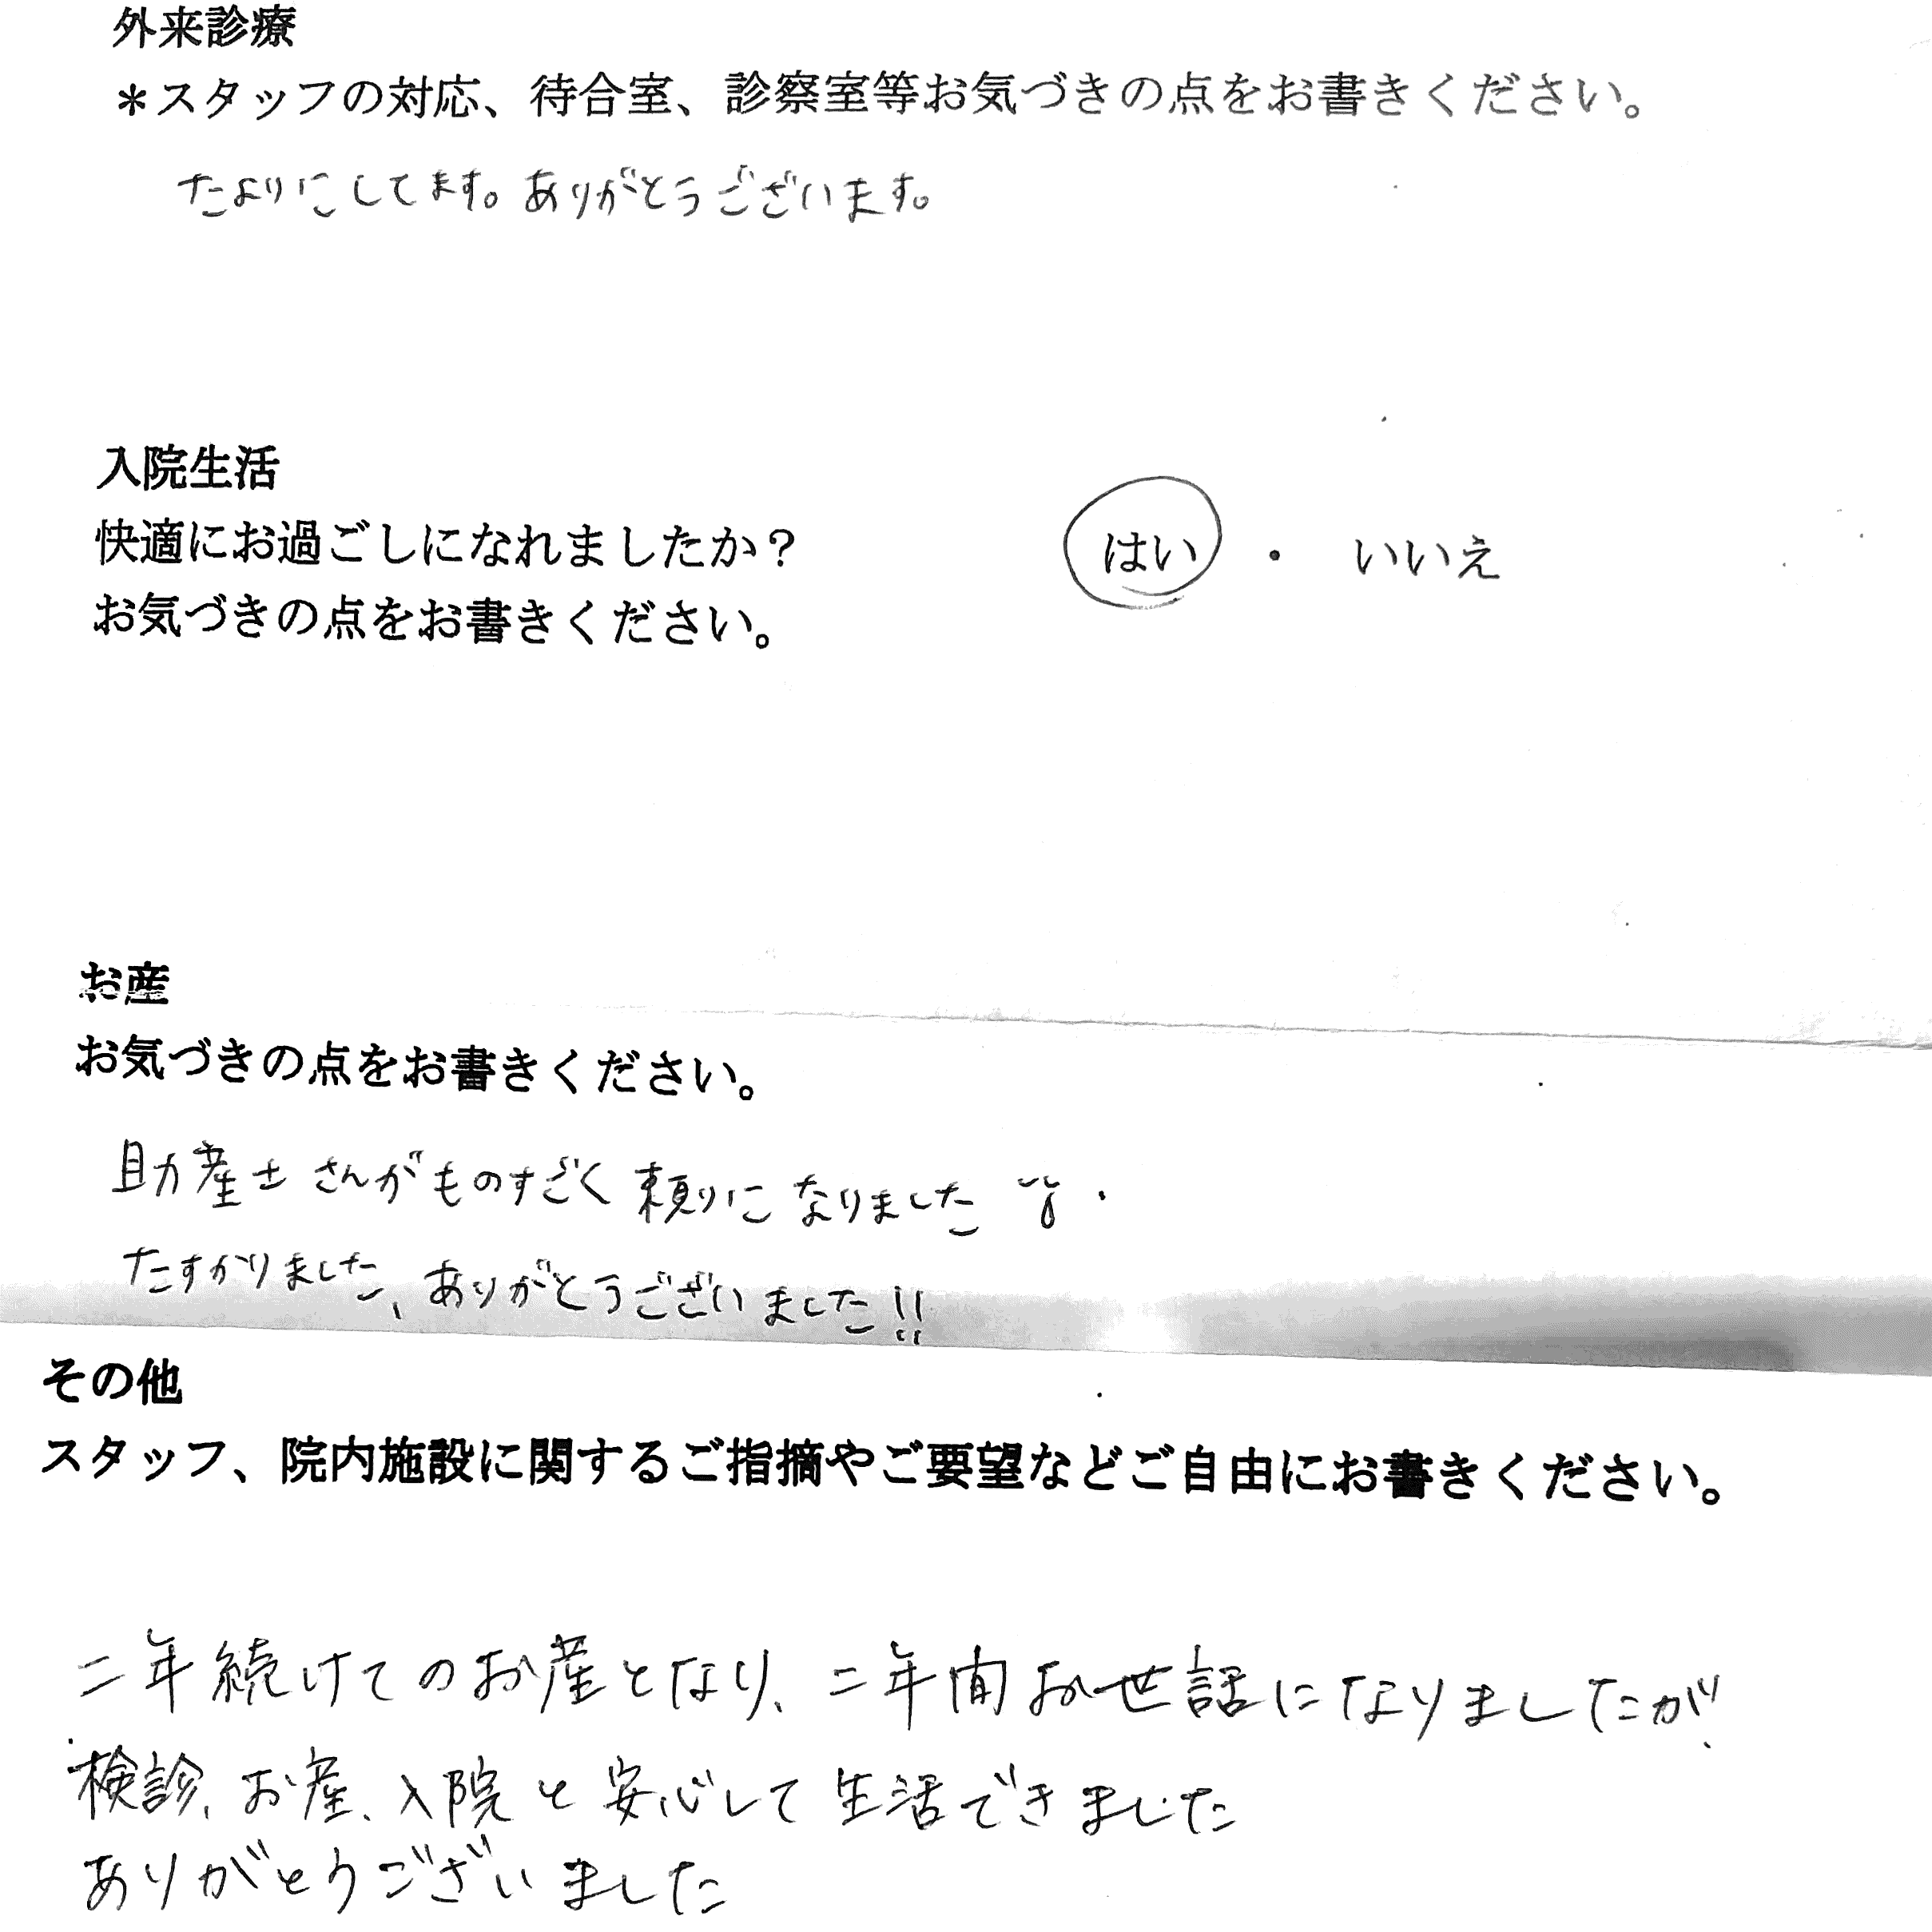 外来診療
＊スタッフの対応、待合室、診察室等お気づきの点をお書きください。
たよりにしてます。ありがとうございます。
入院生活
快適にお過ごしになれましたか？ はい ・ いいえ
お気づきの点をお書きください。
お産
お気づきの点をお書きください。
助産士さんがものすごく頼りになりました
たすかりました、ありがとうございました!!
その他
スタッフ、院内施設に関するご指摘やご要望などご自由にお書きください。
二年続けてのお産となり、二年間お世話になりましたが
検診、お産、入院と安心して生活できました
ありがとうございました